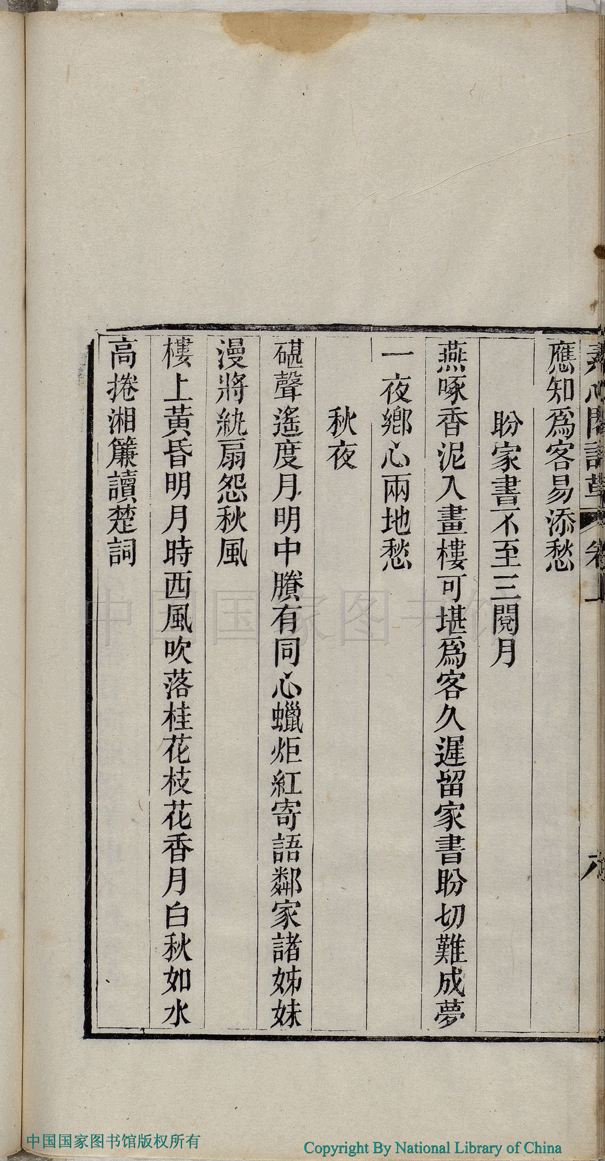 應知爲客易添愁
盼家書不至三閱月
燕啄香泥入畫樓可堪爲客久遲留家書盼切難成夢
一夜鄉心兩地愁
秋夜
碪聲遙度月明中賸有同心蠟炬紅寄語鄰家諸姊妹
漫將紈扇怨秋風
樓上黃昏明月時西風吹落桂花枝花香月白秋如水
高捲湘簾讀楚詞
中国国家图书馆
中国国家图书馆版权所有
Copyright By National Library of China